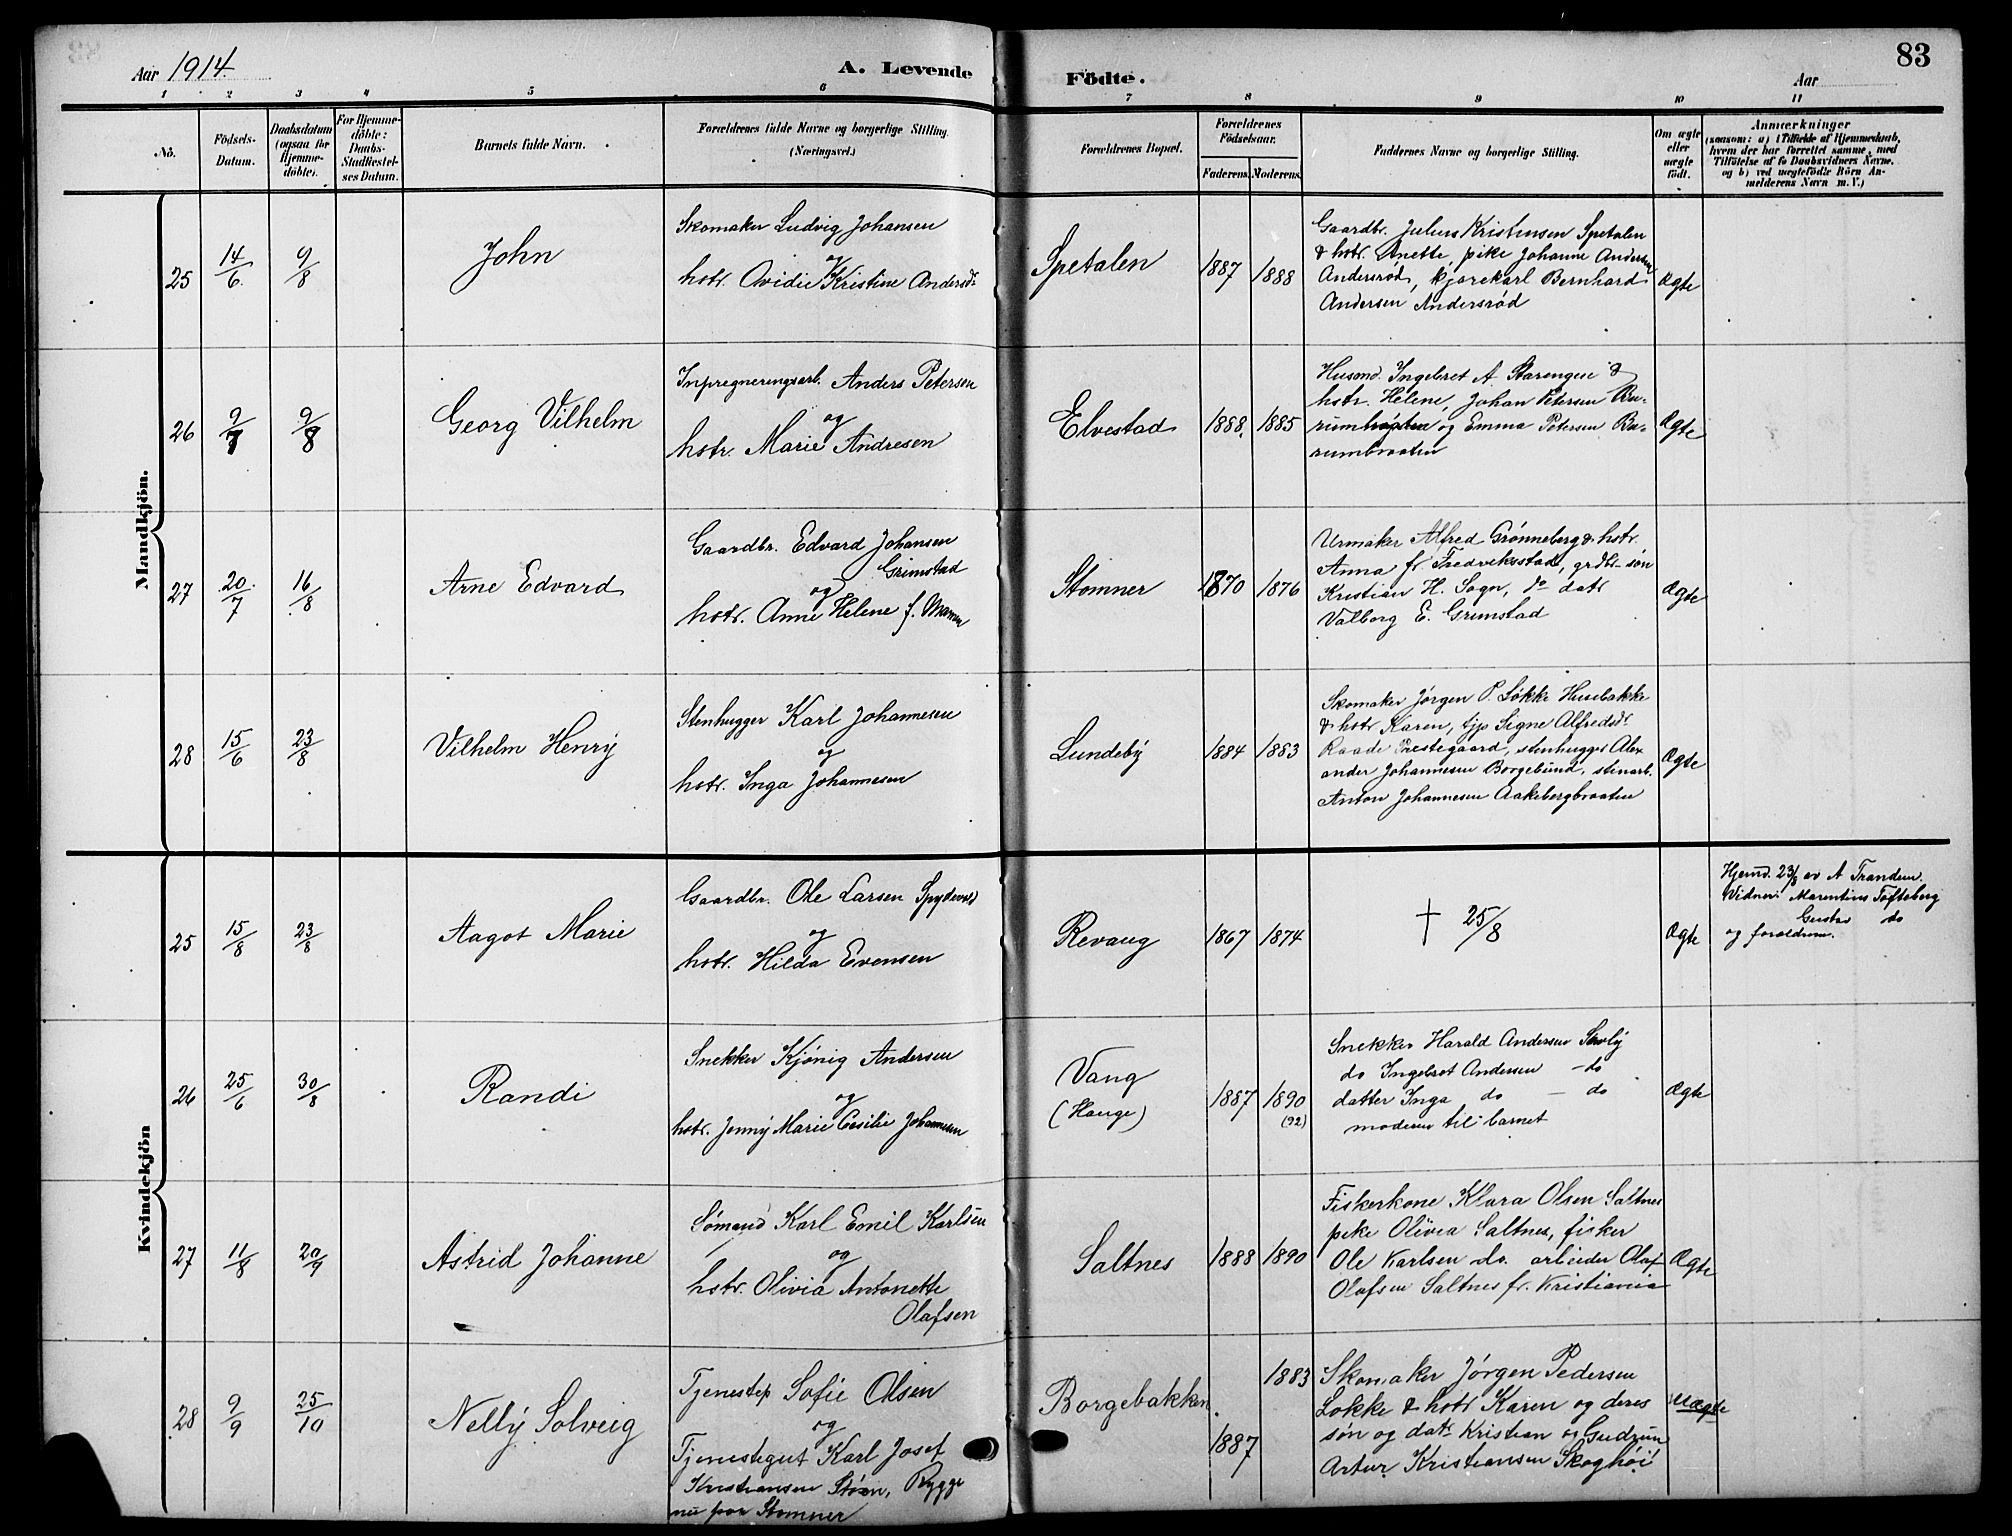 Aar 1914.
A. Levende
Födte.
Aar
83
1 2 3 4 5 6 7 8 9 10 11
No.
Födsels-Datum.
Daabsdatum (ogsaa for Hjemme-döbte).
For Hjemme-döbte: Daabs-Stadfæstel-ses Datum.
Barnets fulde Navn.
Forældrenes fulde Navne og borgerlige Stilling. (Næringsvei.)
Forældrenes Bopæl.
Forældrenes Födselsaar.
Faderens. Moderens.
Faddernes Navne og borgerlige Stilling.
Om ægte eller uægte födt.
Anmærkninger
(saasom: a) i Tilfælde af Hjemmedaab, hvem der har forrettet samme, med Tilföielse af to Daabsvidners Navne, og b) ved uægtefödte Börn An-melderens Navn m. V.)
Mandkjön.
25 14/6 9/8 John
Skomaker Ludvig Johansen
og
hstr. Ovidie Kristine Andersdr
Spetalen 1887 1888
Gaardbr. Julius Kristensen Spetalen
& hstr. Anette, pike Johanne Andersen
Andersrød, kjørekarl Bernhard
Andersen Andersrød
Ægte
26 9/7 9/8 Georg Vilhelm
Inpregneringsarb. Anders Petersen
og
hstr. Marie Andresen
Elvestad 1888. 1885
Husmd. Ingebret A. Starengen &
hstr. Helene, Johan Petersen Bu-
rumhøgden og Emma Petersen Bu-
rumbraaten
Ægte
27 20/7 16/8 Arne Edvard
Gaardbr. Edvard Johansen
Grimstad
og
hstr. Anne Helene f. Mamen
Stomner 1870 1876
Urmaker Alfred Grønneberg & hstr.
Anna fr Fredriksstad, grdbr. søn
Kristian H. Sogn, do datr
Valborg E. Grimstad
Ægte
28 15/6 23/8 Vilhelm Henry
Stenhugger Karl Johannesen
og
hstr. Inga Johannesen
Lundeby 1884 1883
Skomaker Jørgen P. Løkke Husebakke
& hstr Karen, tjp Signe Alfredsdr
Raade Prestegaard, stenhugger Alex
ander Johannesen Borgebund, stenarb.
Anton Johannesen Aakebergbraaten
Ægte
Kvindekjön
25 15/8 23/8 Aagot Marie
Gaardbr. Ole Larsen Spydevold
og
hstr. Hilda Evensen
Revaug 1867 1874
† 25/8
Ægte
Hjemd. 23/8 av A Trandem.
Vidner: Marentius Tofteberg
Gustav do
og forældrene.
26 25/6 30/8 Randi
Snekker Kjønig Andersen
og
hstr. Jenny Marie Cesilie Johannesen
Vang
(Hauge)
1887 1890
(92)
Snekker Harald Andersen Solv
do Ingebret Andersen - do
datter Inga do - do
moderen til barnet
Ægte
27 11/8 20/9 Astrid Johanne
Sømand Karl Emil Karlsen
og
hstr. Olivia Antonette
Olafsen
Saltnes 1888 1890
Fiskerkone Klara Olsen Saltnes
pike Olivia Saltnes, fisker
Ole Karlsen do. arbeider Olaf
Olafsen Saltnes fr. Kristiania
Ægte
28 9/9 25/10 Nelly Solveig
Tjenestep Sofie Olsen
og
Tjenestegut Karl Josef
Kristiansen Støen, Rygge
nu paa Stomner
Borgebakken
1883
1887
Skomaker Jørgen Pedersen
Løkke & hstr Karen og deres
søn og datr Kristian og Gudrun
Artur Kristiansen Skoghøi
Uægte